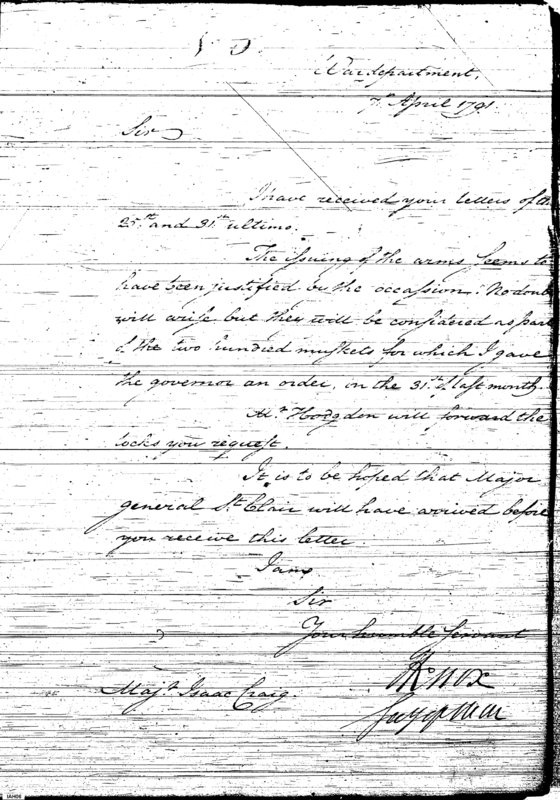 War department,
7th April 1791.
Sir
I have received your letters of the
25th and 31st ultimo.
The issuing of the arms seems to
have been justified by the occassion: No doubt
will arise but they will be considered as part
of the two hundred muskets for which I gave
the governor an order, on the 31st of last month.
Mr Hodgdon will forward the
locks you request.
It is to be hoped that Major
general St Clair will have arrived before
you receive this letter.
I am
Sir
Your humble Servant
HKnox
Secy of War
Majr Isaac Craig.
IAH08